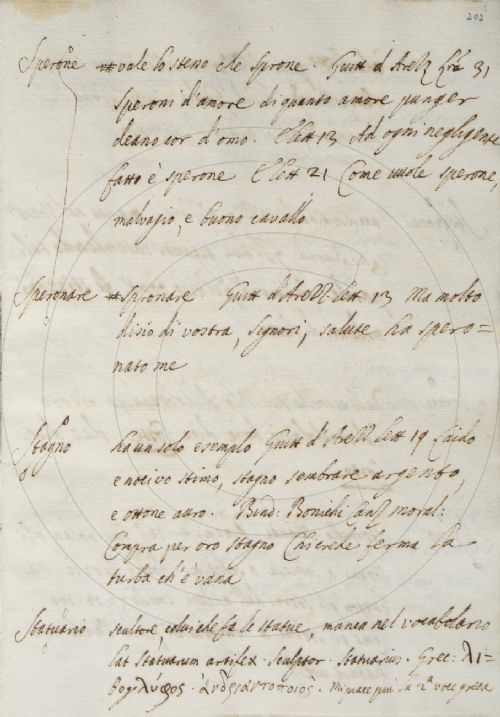 202
Sperone vale lo stesso che sprone. Guitt d'Arezz lett 31
speroni d'amore di quanto amore punger
deano cor d'omo. E lett 13 Ad ogni negligente
fatto è sperone E lett 21 Come vuole sperone
malvagio, e buono cavallo
Speronare spronare Guitt d'Arezz lett 13 Ma molto
disio di vostra, signori, salute ha spero=
nato me
Stagno ha un solo esempio Guitt d'Arezz lett 19
stimo, stagno sembrare argento,
e ottone auro. Bind: Bonichi canz moral:
Compra per oro stagno Chi crede ferma la
turba ch'è vana
Statuario scultore, colui che fa le statue, manca nel vocabolario
lat statuarum artifex. sculptor. statuarius. Grec: λι=
θογλύφος. ἀνδριαντοποιός. Mi piace più la 2ª voce greca